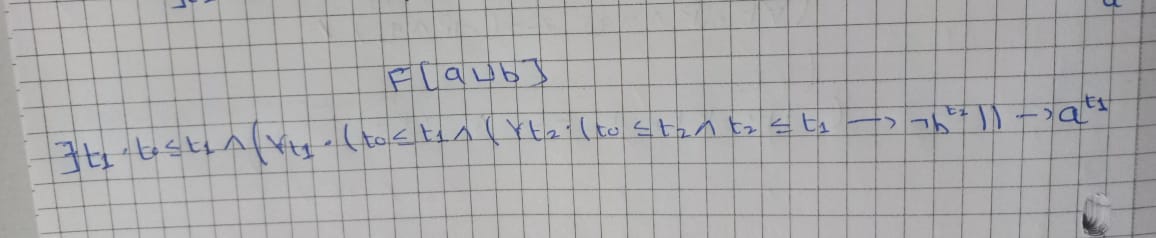 F[a∪b]
∃t₁·t₀≤t₁∧(∀t₁·(t₀≤t₁∧(∀t₂·(t₀≤t₂∧t₂≤t₁→¬b^t₂))→a^t₁